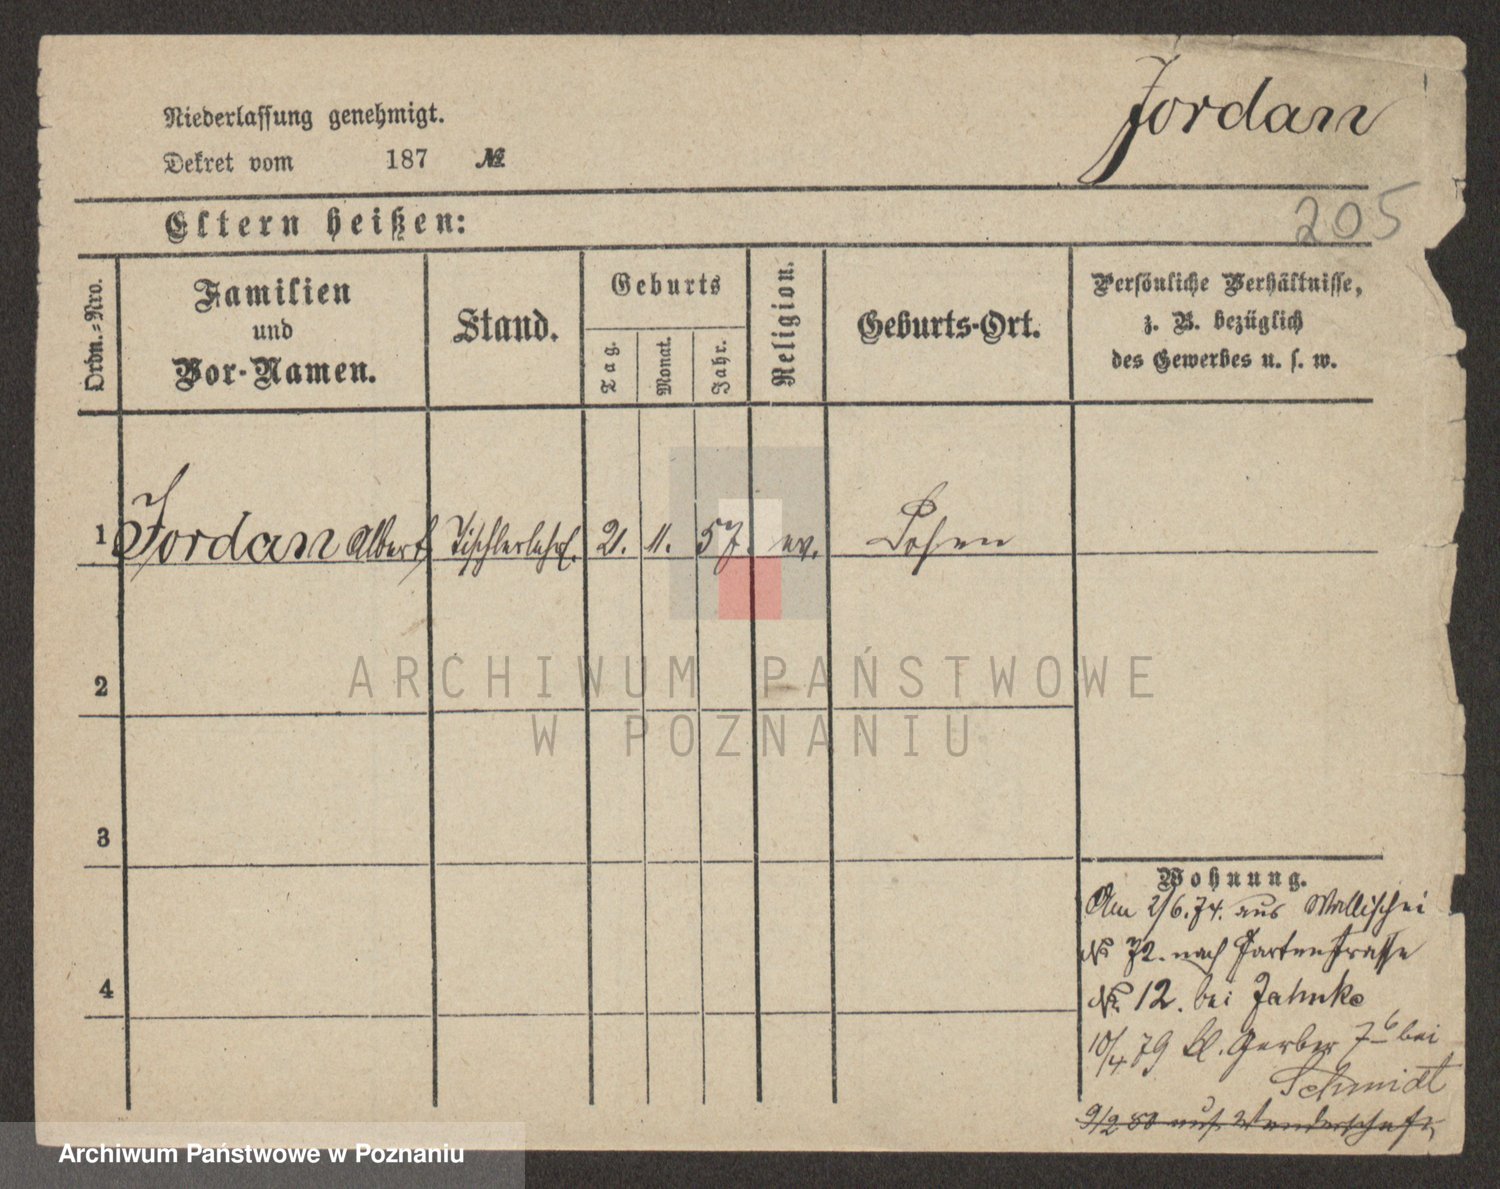 Jordan
Niederlassung genehmigt.
Dekret vom 187 №
205
Eltern heißen:
Ordn.-Nro.
Familien
und
Vor-Namen.
Stand.
Geburts
Tag.
Monat.
Jahr.
Religion.
Geburts-Ort.
Persönliche Verhältnisse,
z. B. bezüglich
des Gewerbes u. s. w.
1 Jordan Albert Tischlerlehrl. 21. 11. 57. ev. Posen
2
3
4
Wohnung.
Am 2/6. 74. aus Wallischei
№ 72. nach Gartenstrasse
№ 12. bei Jahnke
10/4 79 Kl. Gerber 7 6 bei
Schmidt
9/2 80 auf Wanderschaft
ARCHIWUM PAŃSTWOWE
W POZNANIU
Archiwum Państwowe w Poznaniu